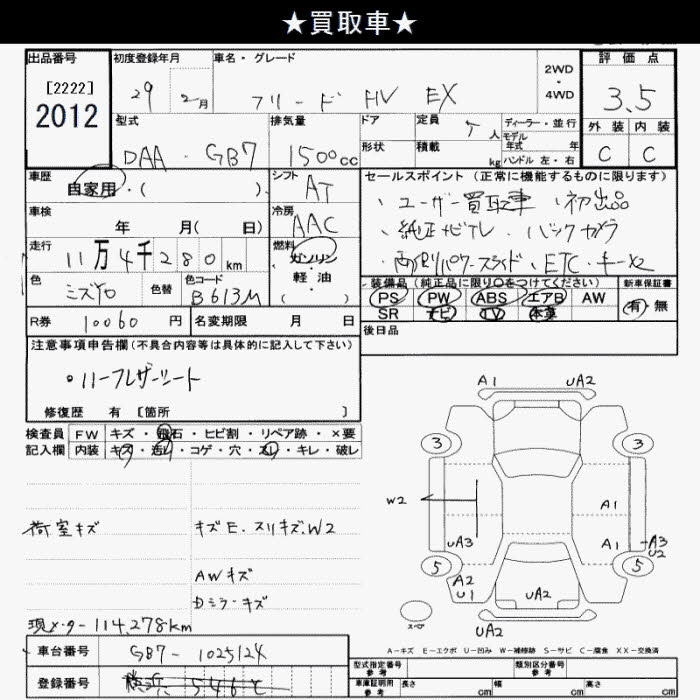 ★買取車★
出品番号
[2222]
2012
初度登録年月
29 2月
車名・グレード
フリード HV EX
2WD
・
4WD
評価点
3.5
外装 内装
C C
型式
DAA - GB7
排気量
1500cc
ドア
形状
定員
5人
積載
kg
ディーラー・並行
モデル
年式 年
ハンドル 左・右
車歴
自家用・( )
シフト
AT
車検
年 月( 日)
冷房
AAC
走行
11万4千280km
燃料
ガソリン
・
軽油
( )
色
ミズイロ
色替
色コード
B613M
R券 10060円
名変期限 月 日
セールスポイント(正常に機能するものに限ります)
・ユーザー買取車 ・初出品
・純正ナビTV ・バックカメラ
・両側パワースライド・ETC・キー×2
装備品(純正品に限り○をつけてください)
PS PW ABS エアB AW
SR ナビ TV 本革
新車保証書
有・無
後日品
注意事項申告欄(不具合内容等は具体的に記入して下さい)
・ハーフレザーシート
修復歴 有 [箇所 ]
検査員
記入欄
FW キズ・飛石・ヒビ割・リペア跡・×要
内装 キズ・汚レ・コゲ・穴・スレ・キレ・破レ
荷室キズ
キズE.スリキズ.W2
AWキズ
Dミラーキズ
現メーター114,278km
A1 UA2
3 3
W2
A1
UA3 A1 A3
U2
5 5
A2
U1
UA2
スペア
UA2
A-キズ E-エクボ U-凹み W-補修跡 S-サビ C-腐食 XX-交換済
車台番号 GB7-1025124
登録番号
型式指定番号
参考
類別区分番号
参考
車庫証明用
参考
長さ cm 幅 cm 高さ cm